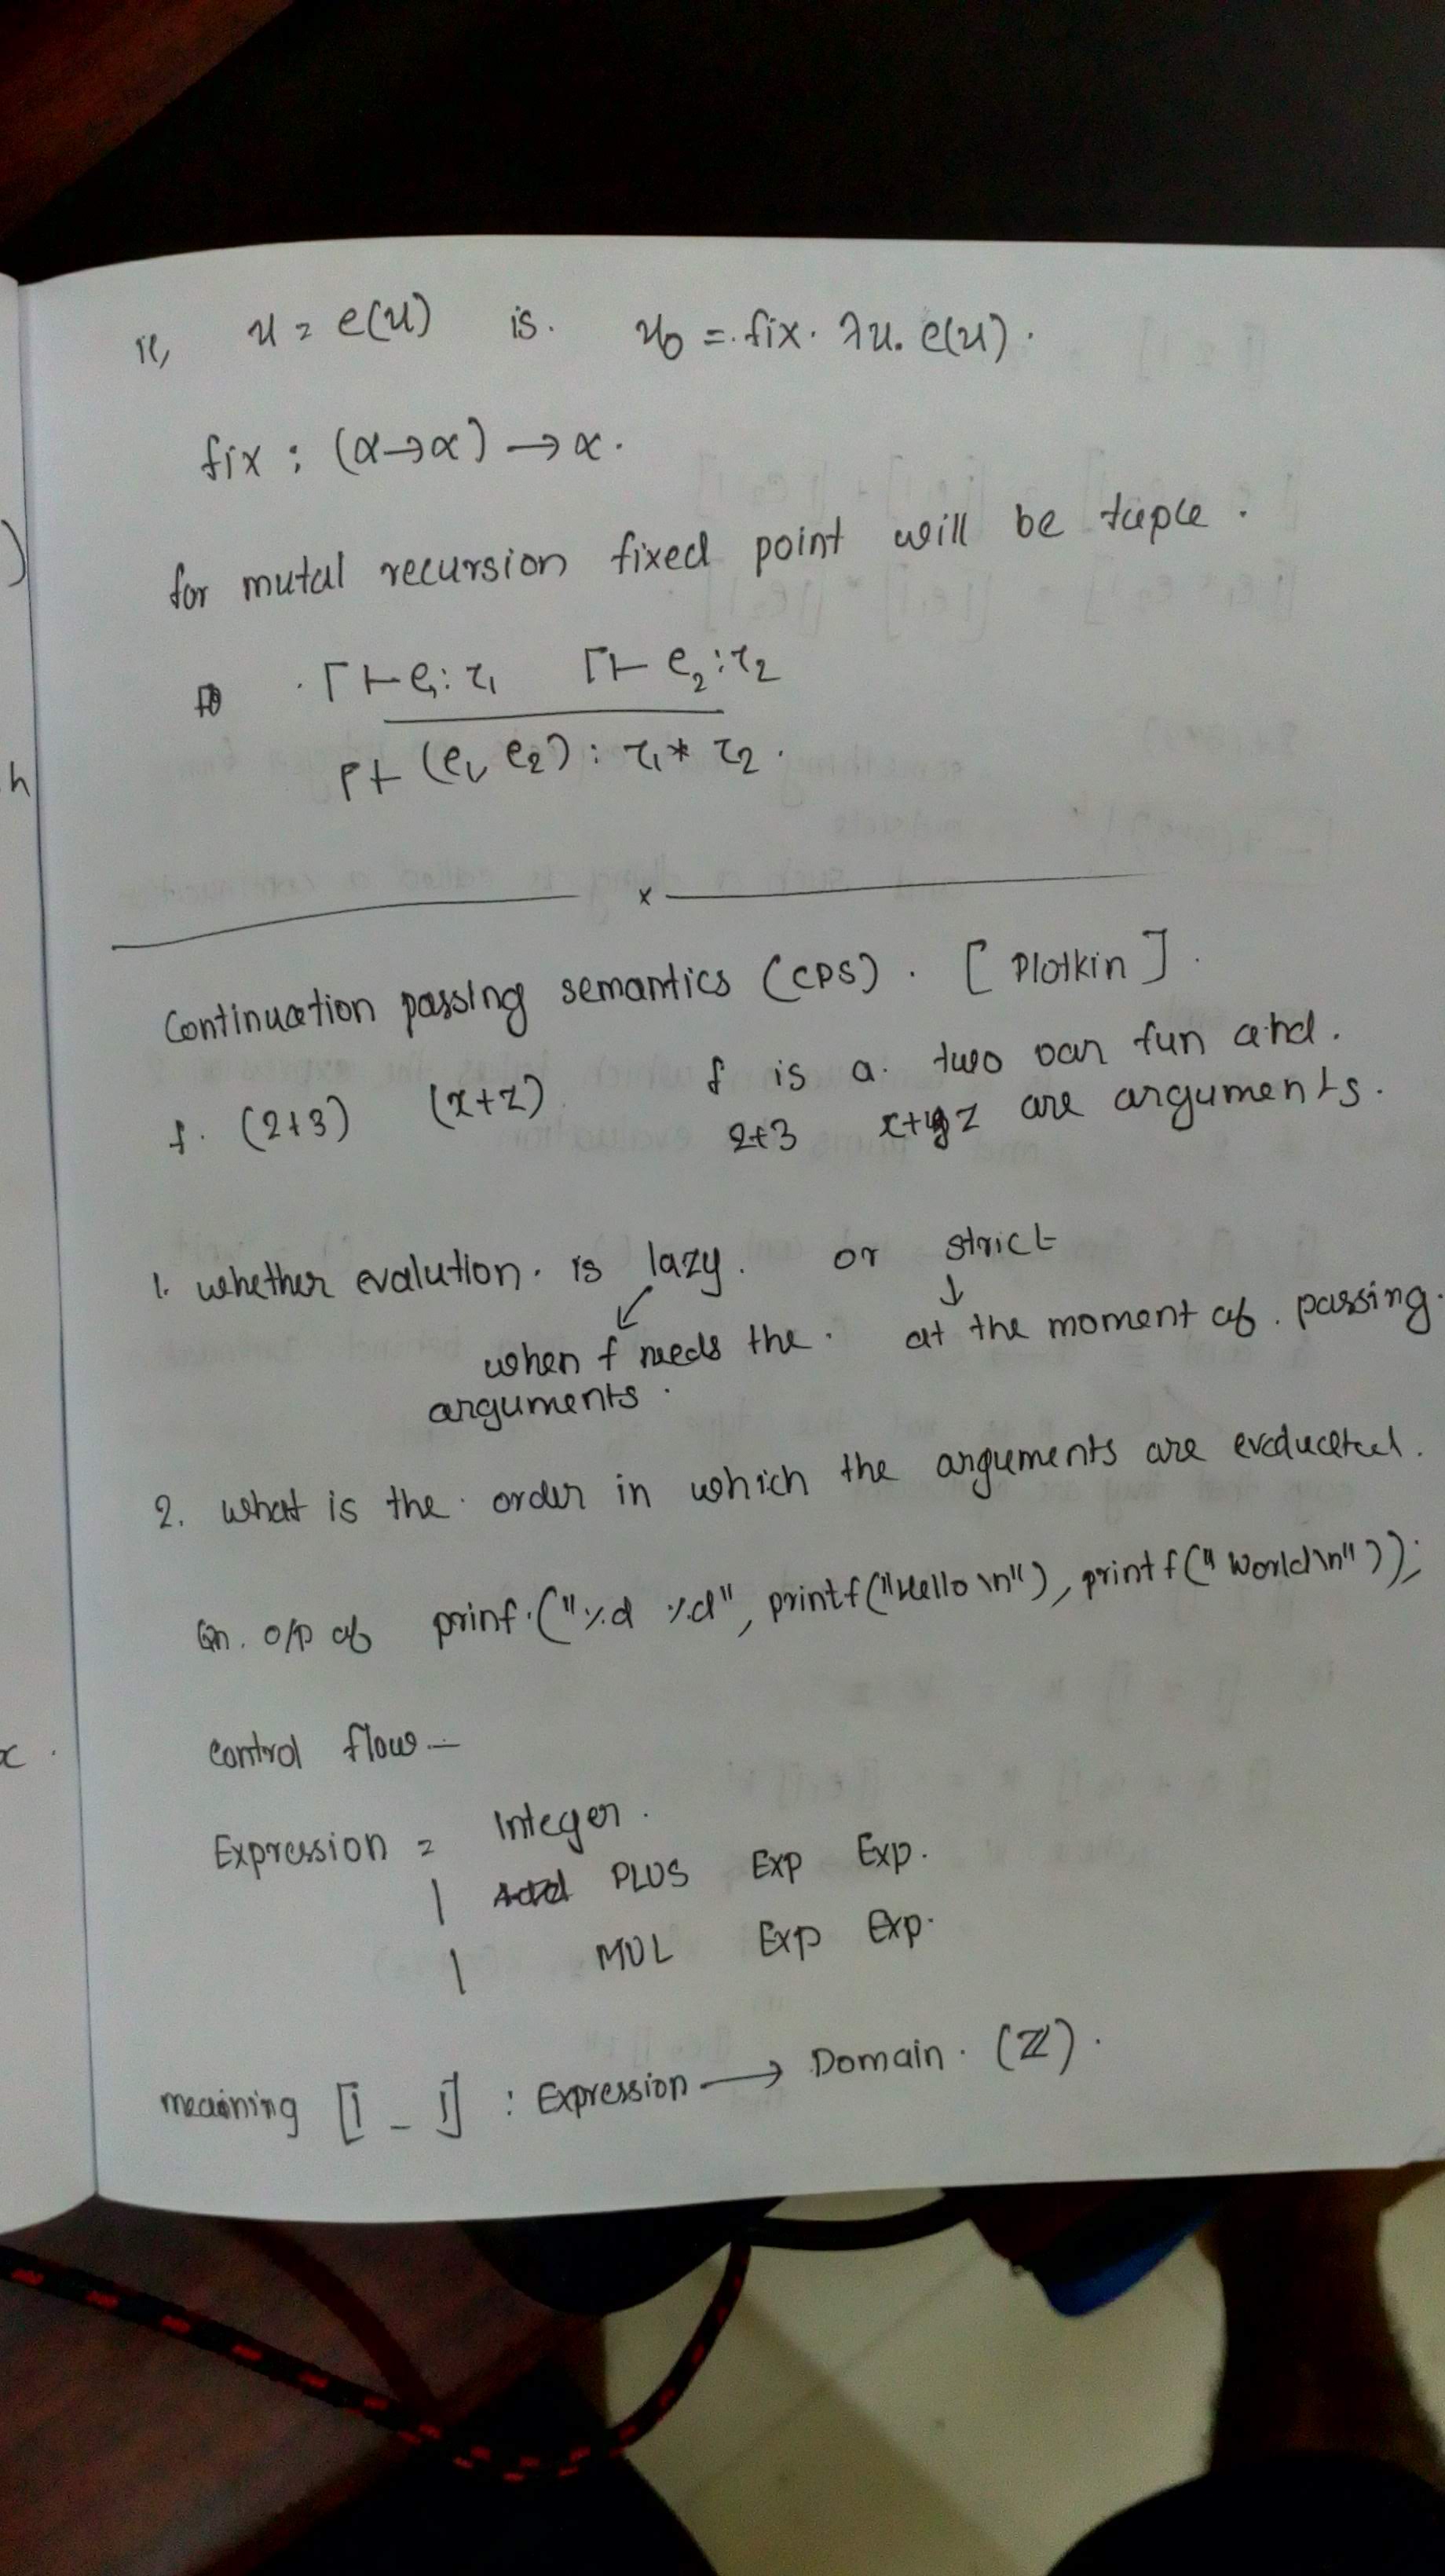 ie, x = e(x) is. x₀ = fix. λx. e(x).
fix : (α→α) → α.
for mutal recursion fixed point will be tuple.
Γ ⊢ e₁ : τ₁ Γ ⊢ e₂ : τ₂
Γ ⊢ (e₁, e₂) : τ₁ * τ₂.
x
Continuation passing semantics (CPS). [Plotkin].
f. (2+3) (x+z) f is a two var fun and.
2+3 x+z are arguments.
1. whether evalution. is lazy. or strict
when f needs the. at the moment of. passing.
arguments.
2. what is the order in which the arguments are evaluated.
Qn. o/p of prinf.("%d %d", printf("Hello \n"), printf("World\n"));
control flow —
Expression = Integer.
| PLUS Exp Exp.
| MUL Exp Exp.
meaning [[ _ ]] : Expression → Domain. (ℤ).
h
x.
)